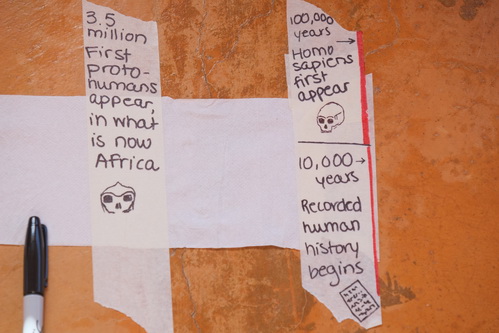 3.5
million
First
proto-
humans
appear,
in what
is now
Africa
100,000
years →
Homo
sapiens
first
appear
10,000 →
years
Recorded
human
history
begins